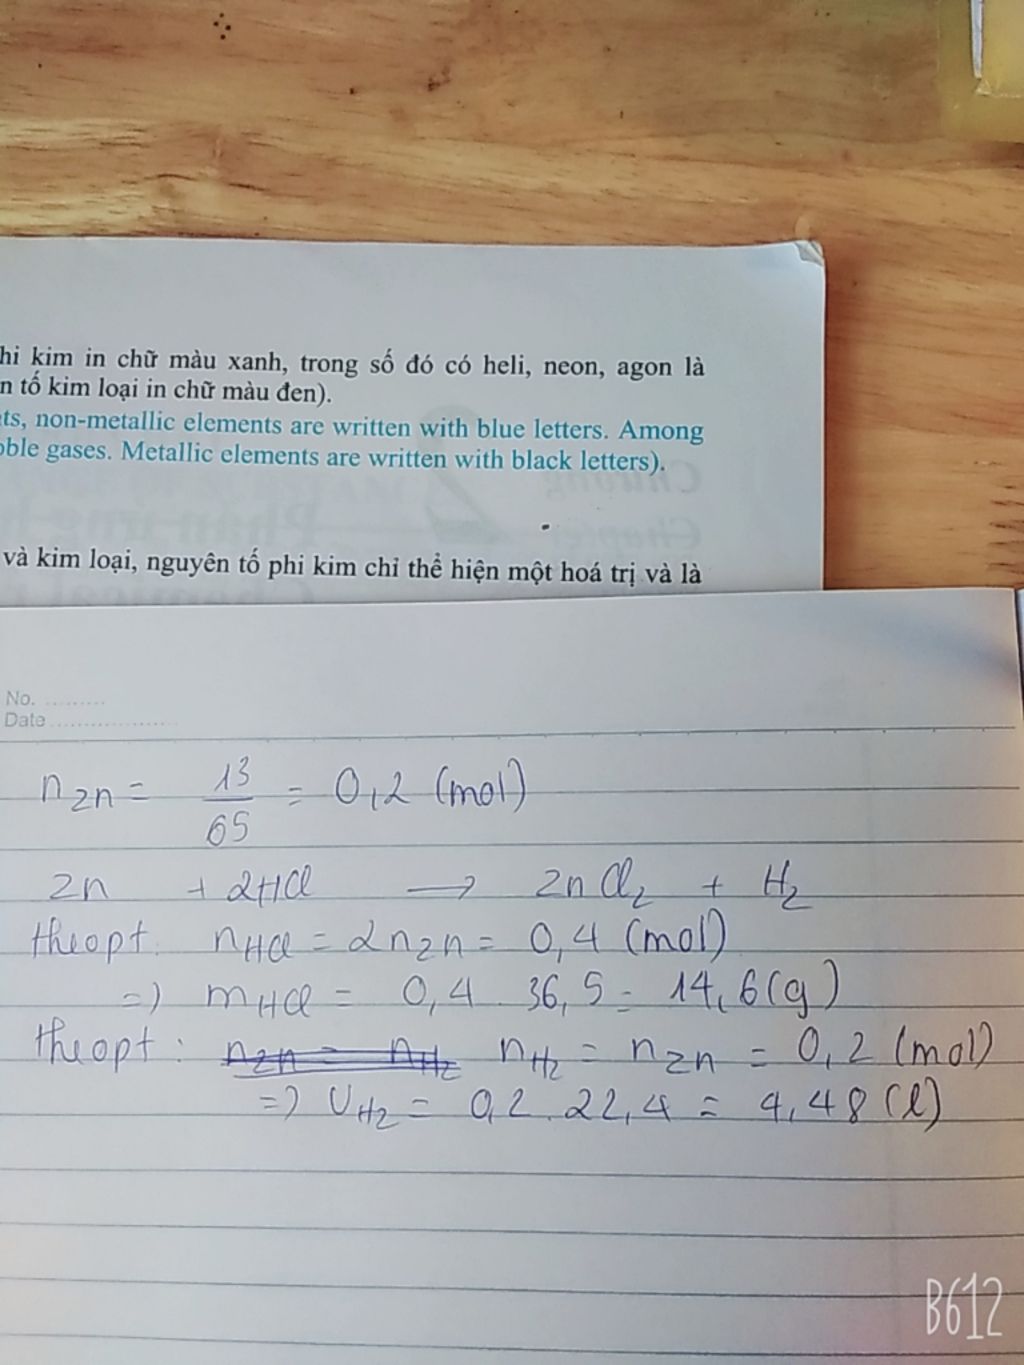 hi kim in chữ màu xanh, trong số đó có heli, neon, agon là
n tố kim loại in chữ màu đen).
ts, non-metallic elements are written with blue letters. Among
ble gases. Metallic elements are written with black letters).
và kim loại, nguyên tố phi kim chỉ thể hiện một hoá trị và là
No. ..........
Date ..................
n Zn = 13/65 = 0,2 (mol)
Zn + 2HCl → ZnCl2 + H2
theo pt n HCl = 2 n Zn = 0,4 (mol)
=) m HCl = 0,4 . 36,5 = 14,6 (g)
theo pt : n Zn = n H2 n H2 = n Zn = 0,2 (mol)
=) V H2 = 0,2 . 22,4 = 4,48 (l)
B612